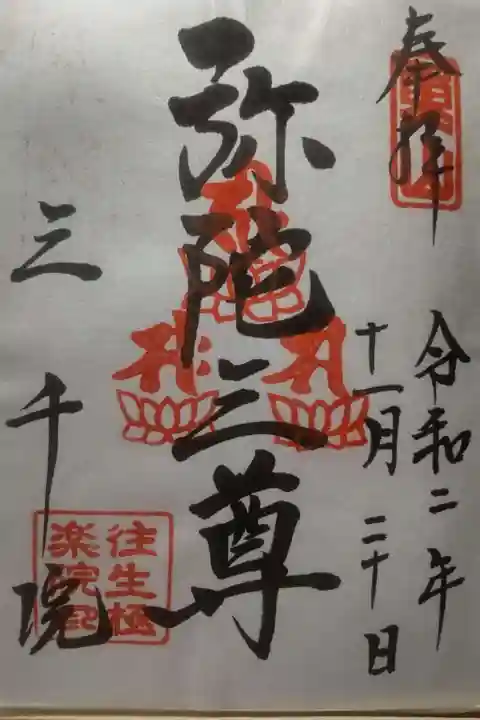 奉拝
令和二年
十一月二十日
弥陀三尊
三千院
往生極
楽院印